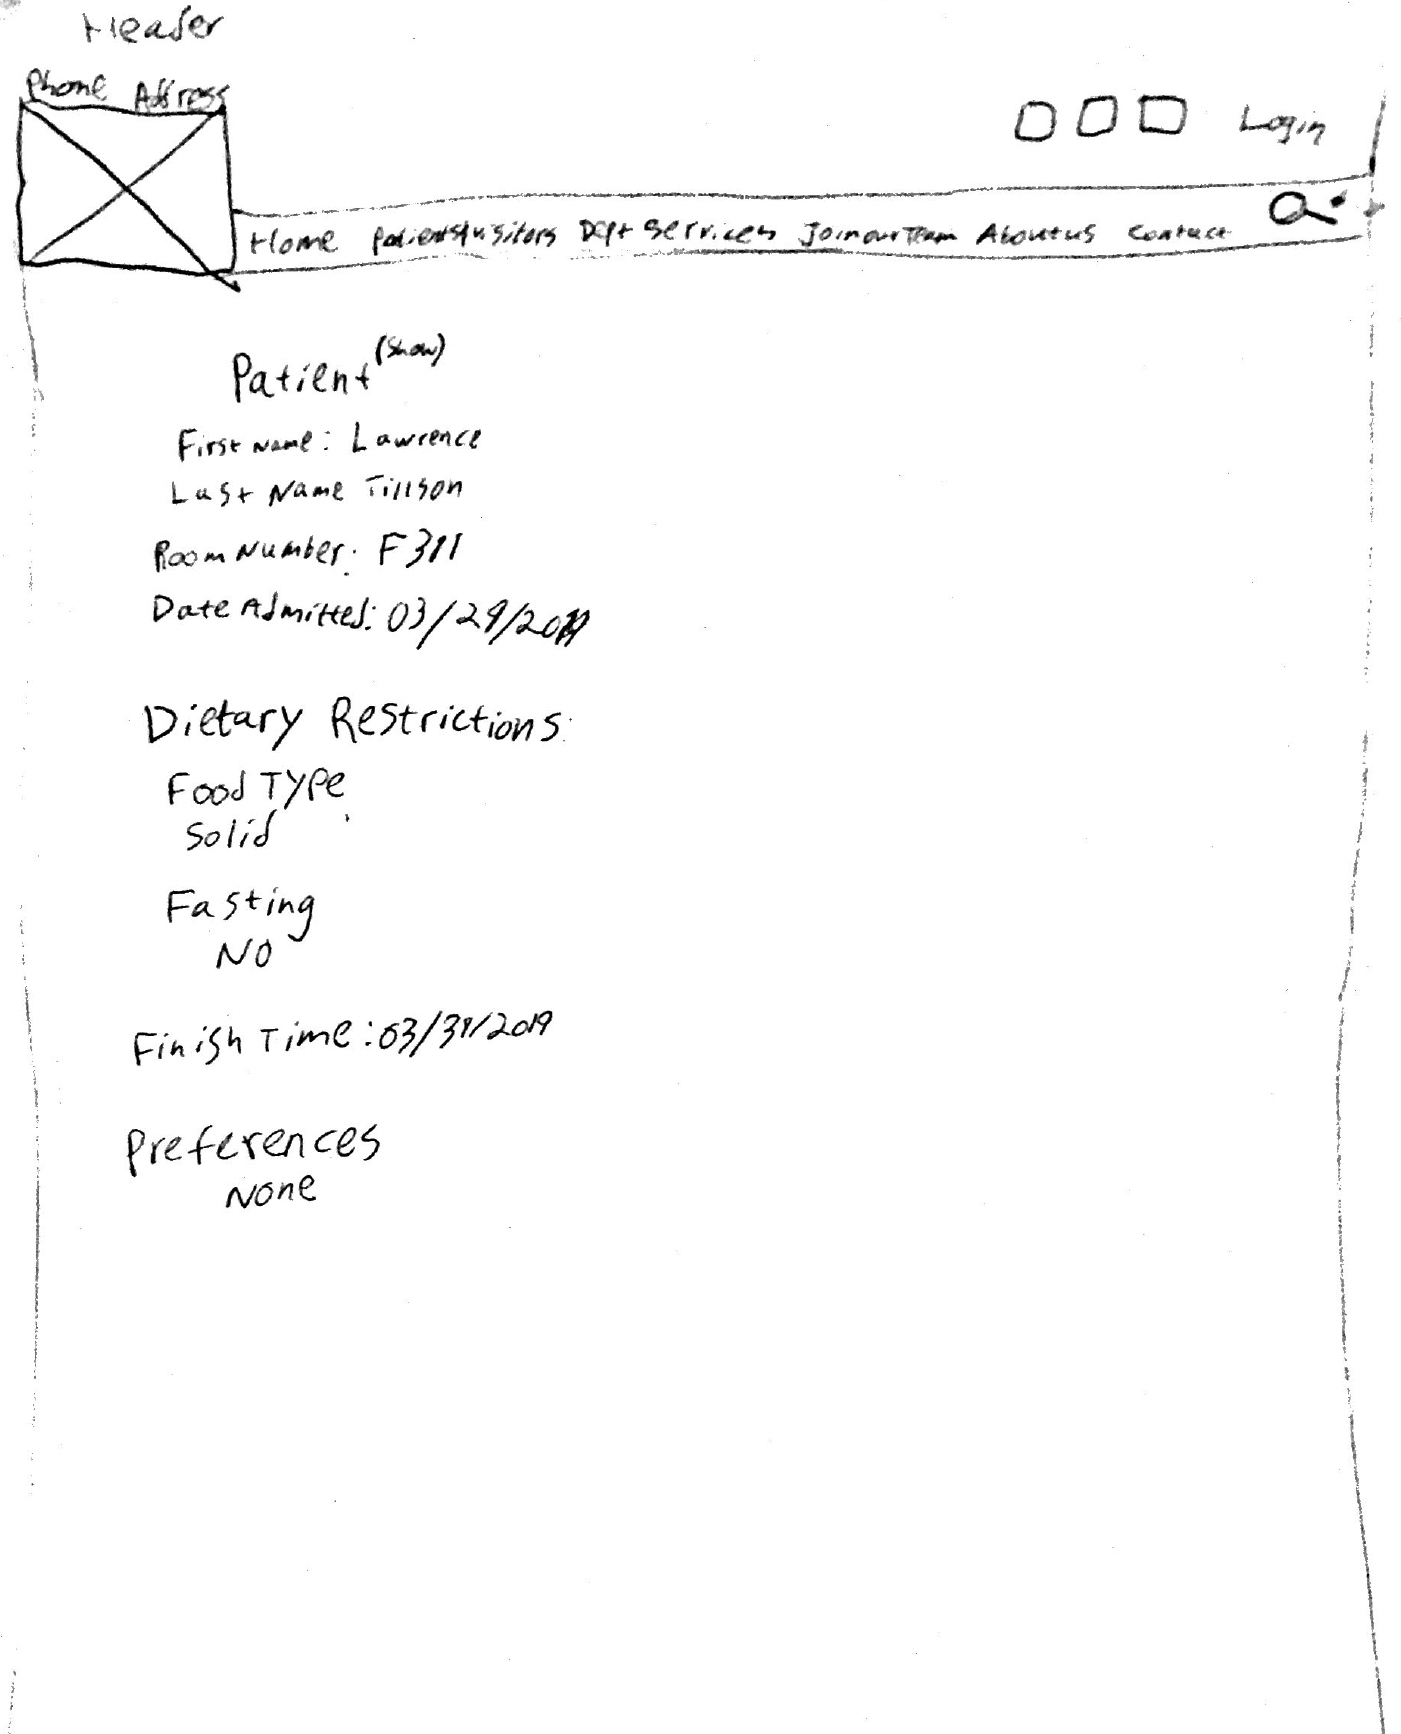 Header
Phone Address
Login
Home Patients/Visitors Dept Services Join our Team About us Contact
Patient (Show)
First Name: Lawrence
Last Name Tillson
Room Number: F311
Date Admitted: 03/29/2019
Dietary Restrictions:
Food Type
Solid
Fasting
NO
Finish Time: 03/31/2019
Preferences
None